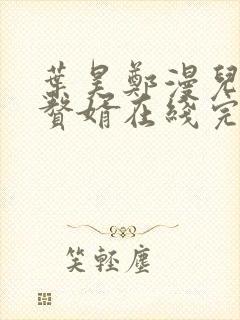 葉昊鄭漫兒
贅婿在綫完
笑輕塵